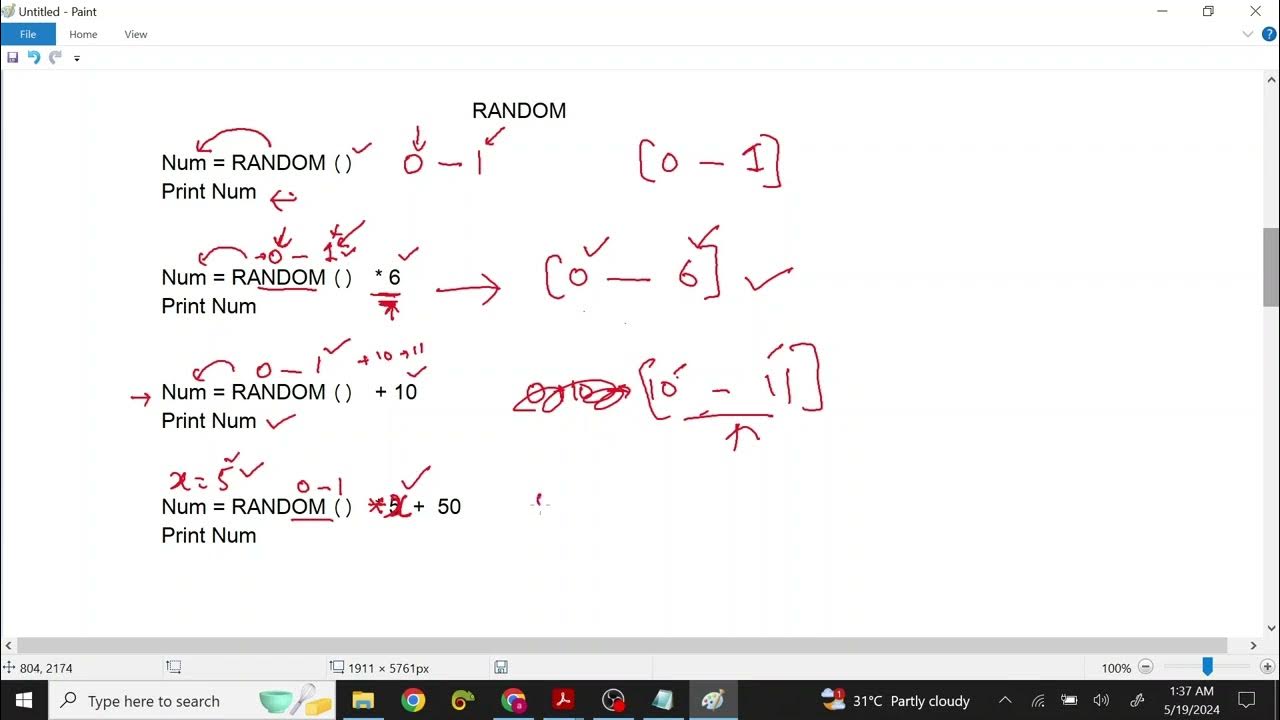 Untitled - Paint
File Home View
RANDOM
Num = RANDOM ( ) 0 - 1 [0 - 1]
Print Num
0 - 1
Num = RANDOM ( ) * 6 [0 - 6]
Print Num
0 - 1 + 10 → 11
Num = RANDOM ( ) + 10 [10 - 11]
Print Num
x = 5
0 - 1
Num = RANDOM ( ) * x + 50
Print Num
804, 2174 1911 × 5761px 100%
Type here to search 31°C Partly cloudy 1:37 AM
5/19/2024